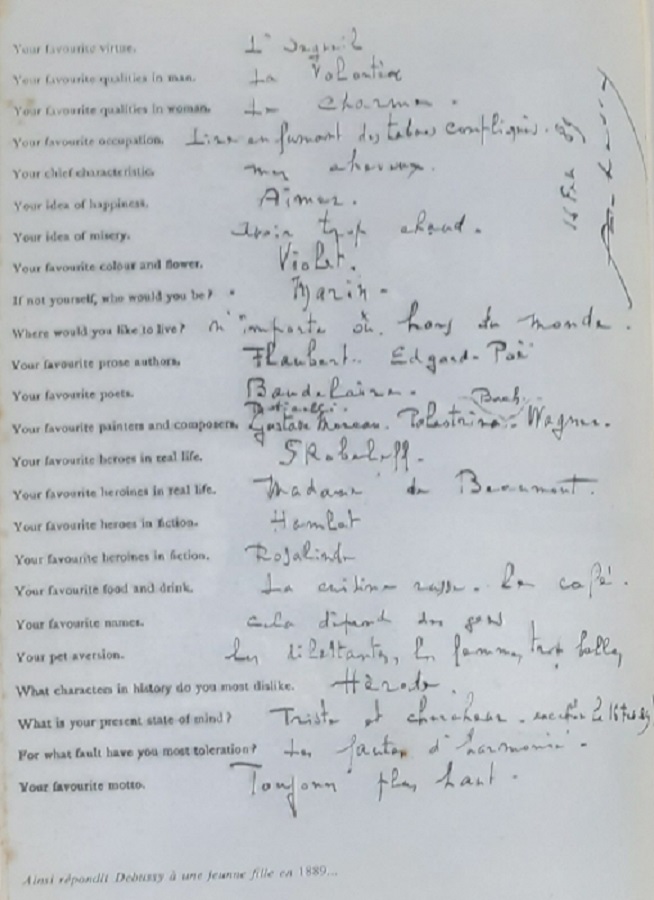 Your favourite virtue. L'orgueil
Your favourite qualities in man. La Volonté
Your favourite qualities in woman. Le charme.
Your favourite occupation. Lire en fumant des tabacs compliqués.
Your chief characteristic. mes cheveux.
Your idea of happiness. Aimer.
Your idea of misery. avoir trop chaud.
Your favourite colour and flower. Violet.
If not yourself, who would you be? Marin -
Where would you like to live? N'importe où hors du monde.
Your favourite prose authors. Flaubert. Edgard-Poë
Your favourite poets. Baudelaire.
Bach.
Botticelli.
Your favourite painters and composers. Gustave Moreau. Palestrina. Wagner.
Your favourite heroes in real life. Skobeleff.
Your favourite heroines in real life. Madame de Beaumont.
Your favourite heroes in fiction. Hamlet
Your favourite heroines in fiction. Rosalinde
Your favourite food and drink. La cuisine russe. le café.
Your favourite names. cela dépend des gens
Your pet aversion. les dilettantes, les femmes trop belles
What characters in history do you most dislike. Hérode.
What is your present state of mind? Triste et chercheur. le 16 Fev 89
For what fault have you most toleration? Les fautes d'harmonie.
Your favourite motto. Toujours plus haut.
16 Feb 89
Ainsi répondit Debussy à une jeune fille en 1889...